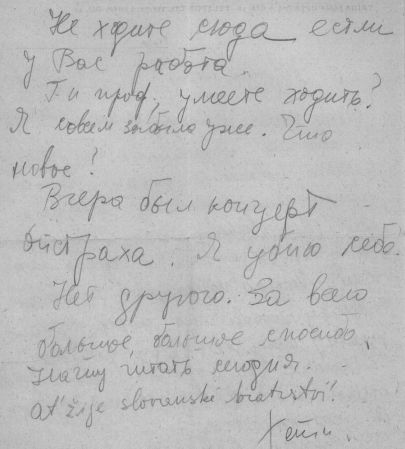 Не ходите сюда если
у Вас работа.
Ти проф, умеете ходить?
Я совсем забыла уже. Что
новое?
Вчера был концерт
Ойстраха. Я убию себя.
Нет другого. За всего
большое, большое спасибо,
Начну читать сегодня.
at' žije slovanské bratrství!